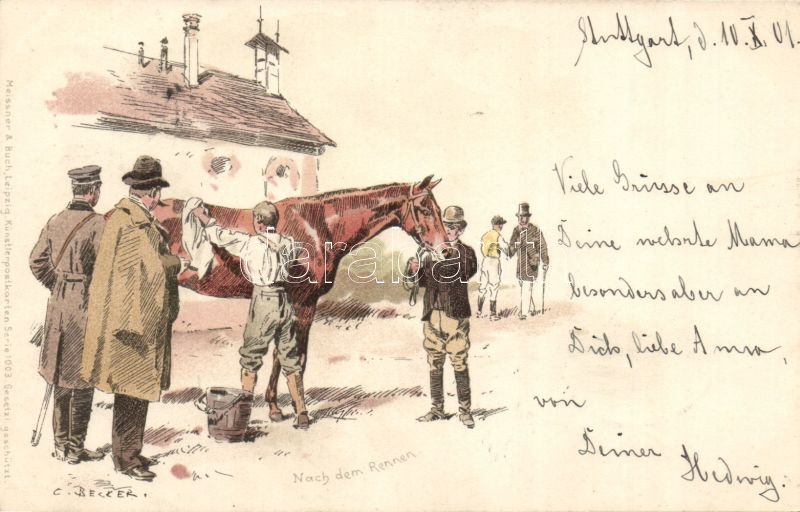 Stuttgart, d. 10. X. 01.
Viele Grüsse an
Deine werte Mama
besonders aber an
Dich, liebe Anna,
von
Deiner
Hedwig.
Nach dem Rennen
C. BECKER.
Meissner & Buch, Leipzig. Künstlerpostkarten Serie 1003. Gesetzl. geschützt.
Darabanth